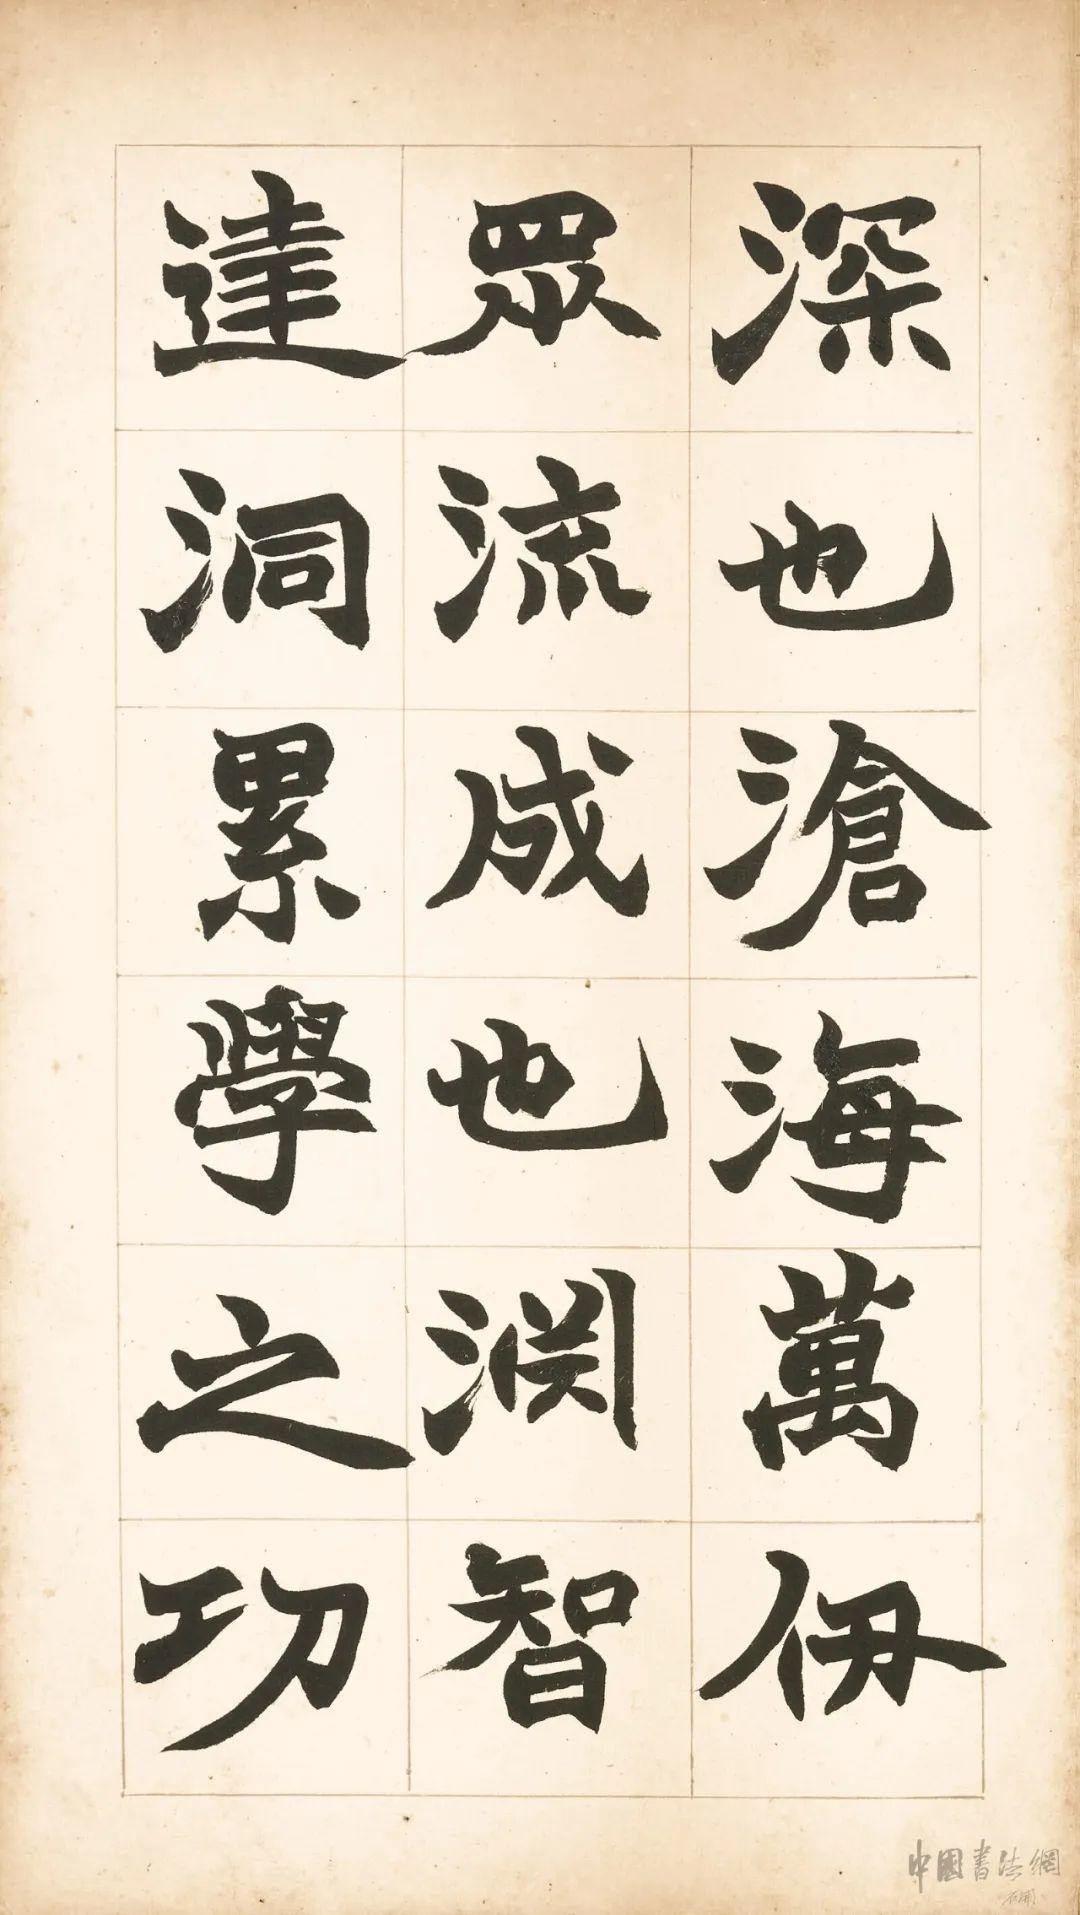 深也滄海萬仞
眾流成也淵智
達洞累學之功
中國書法網